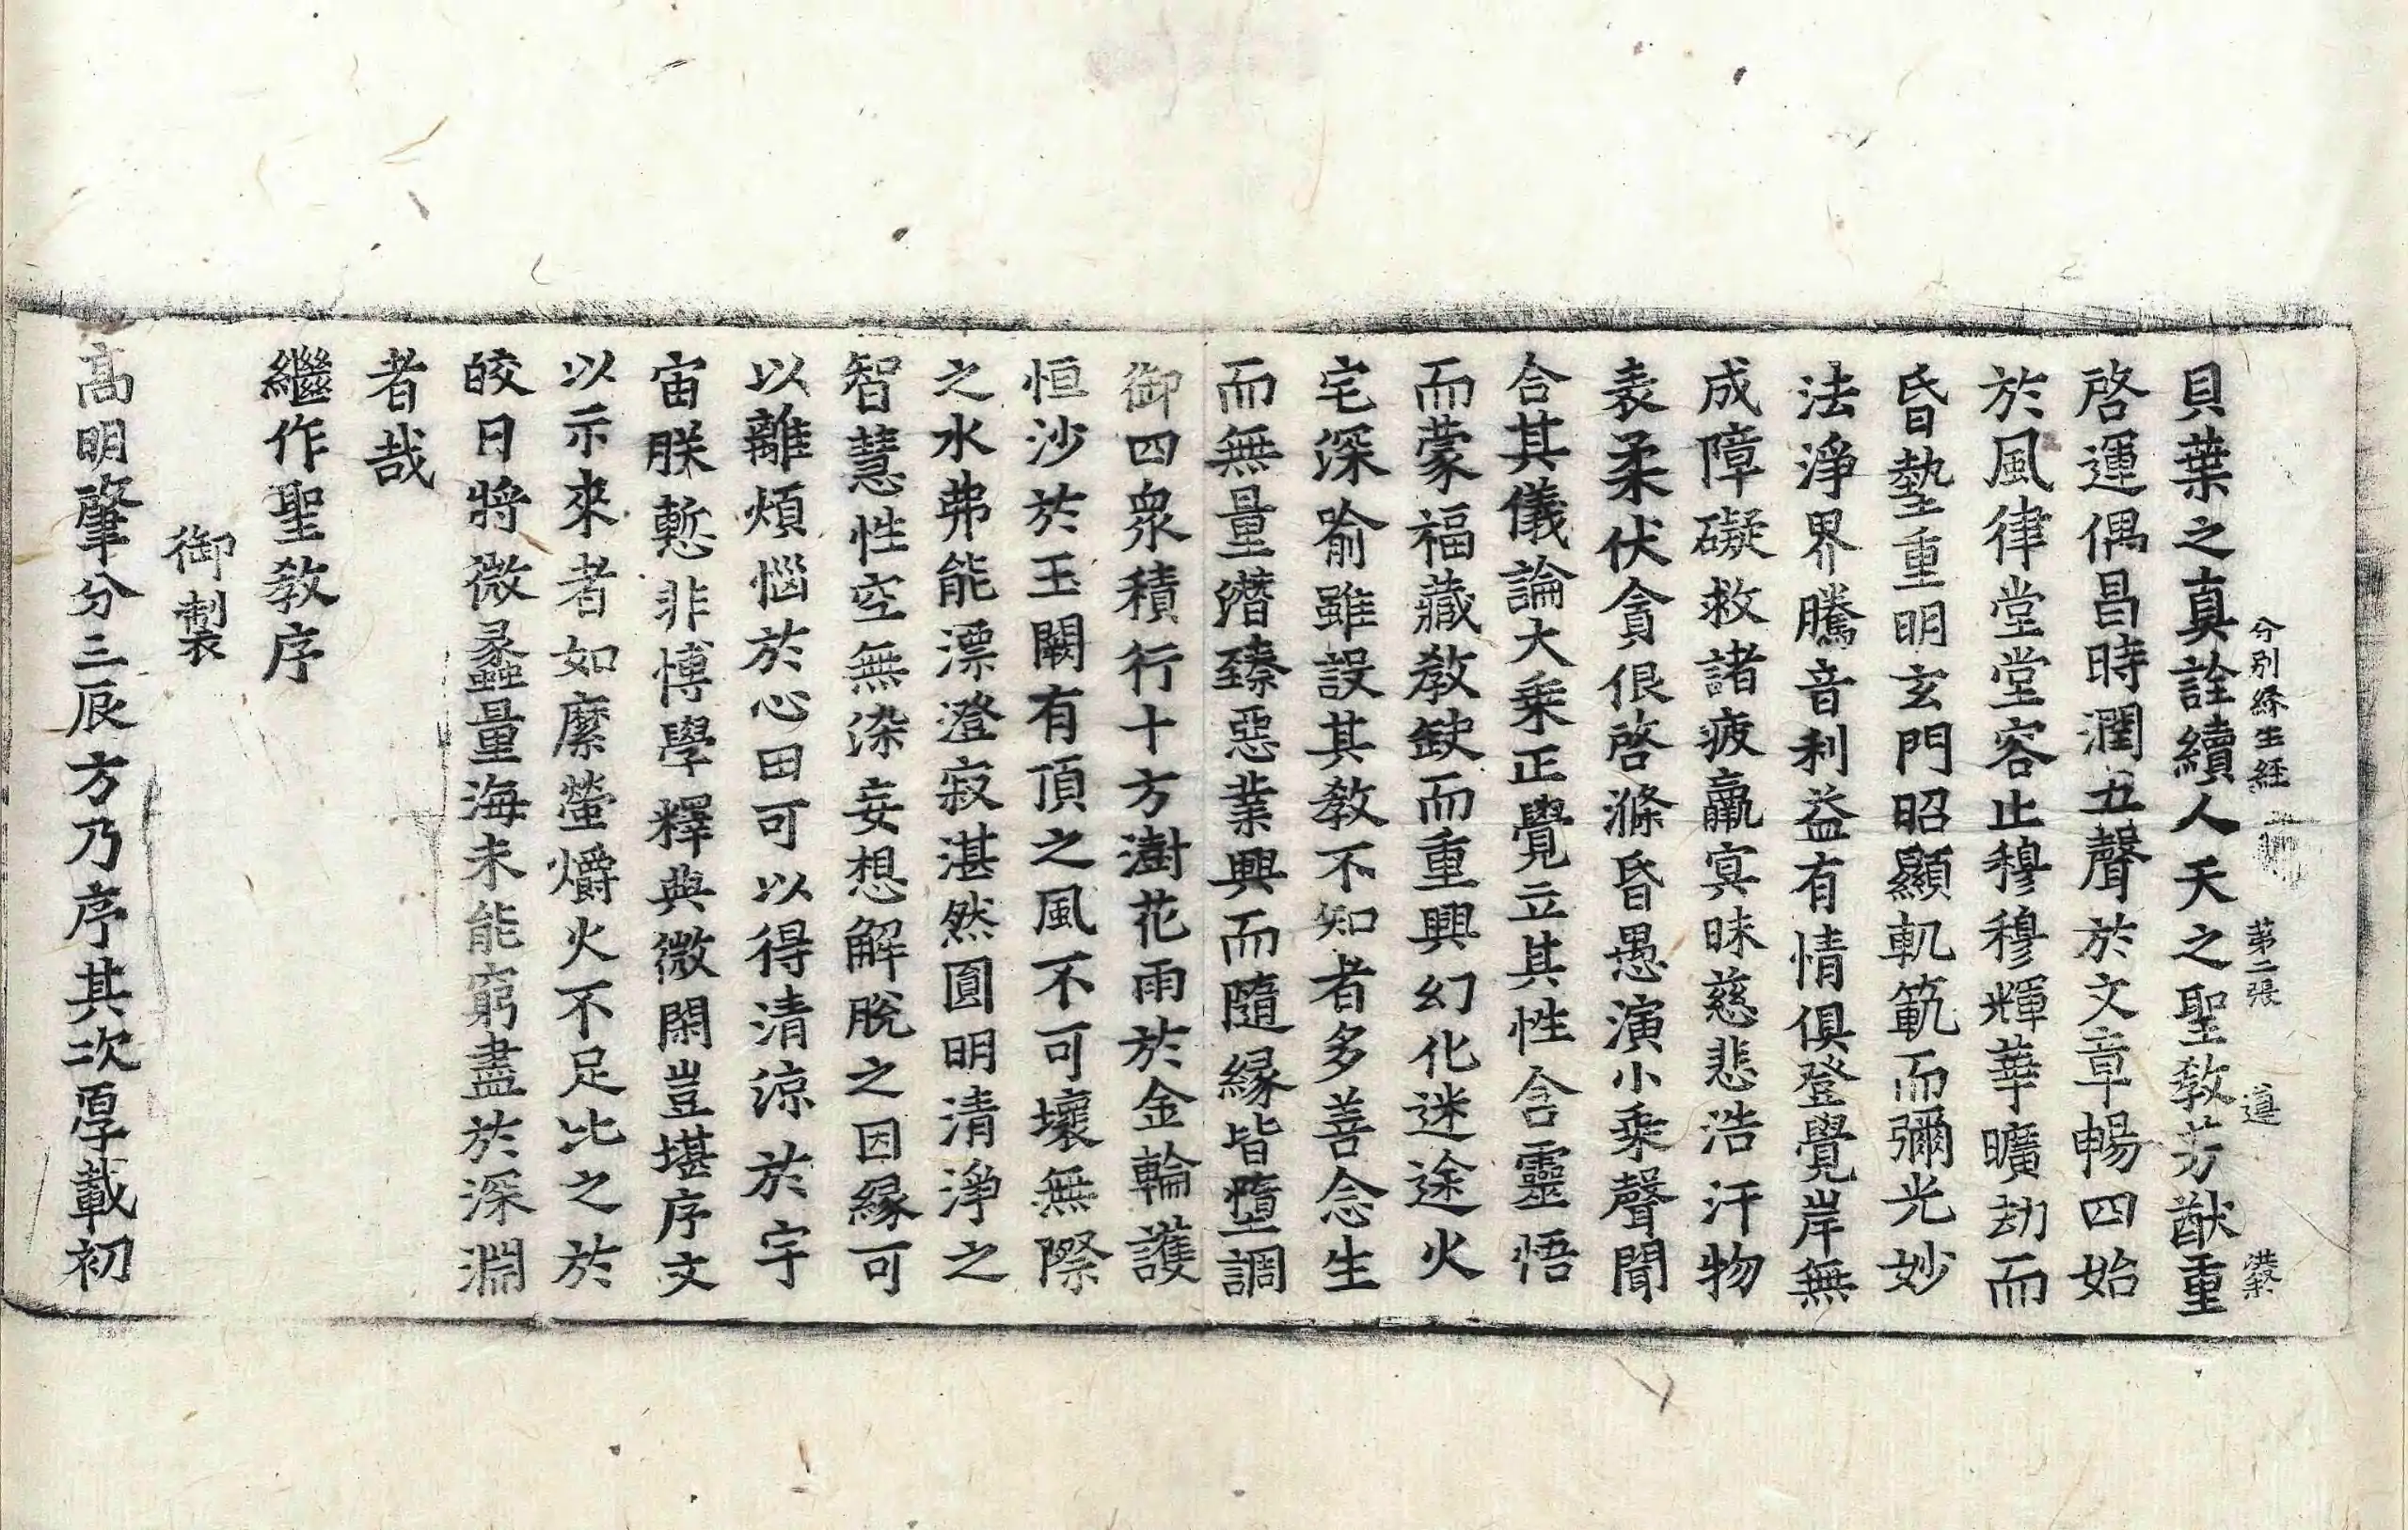 分別緣生經 第二張 遵 洪
貝葉之真詮續人天之聖教芳猷重
啓運偶昌時潤五聲於文章暢四始
於風律堂堂容止穆穆輝華曠劫而
昏墊重明玄門昭顯軌範而彌光妙
法淨界騰音利益有情俱登覺岸無
成障礙救諸疲羸冥昧慈悲浩汗物
表柔伏貪佷啓滌昏愚演小乘聲聞
合其儀論大乘正覺立其性含靈悟
而蒙福藏教缺而重興幻化迷途火
宅深喻雖設其教不知者多善念生
而無量潛臻惡業興而隨緣皆墮調
御四衆積行十方澍花雨於金輪護
恒沙於玉闕有頂之風不可壞無際
之水弗能漂澄寂湛然圓明清淨之
智慧性空無染妄想解脫之因緣可
以離煩惱於心田可以得清涼於宇
宙朕慙非博學釋典微閑豈堪序文
以示來者如縻螢爝火不足比之於
皎日將微蠡量海未能窮盡於深淵
者哉
繼作聖教序
御製
高明肇分三辰方乃序其次厚載初